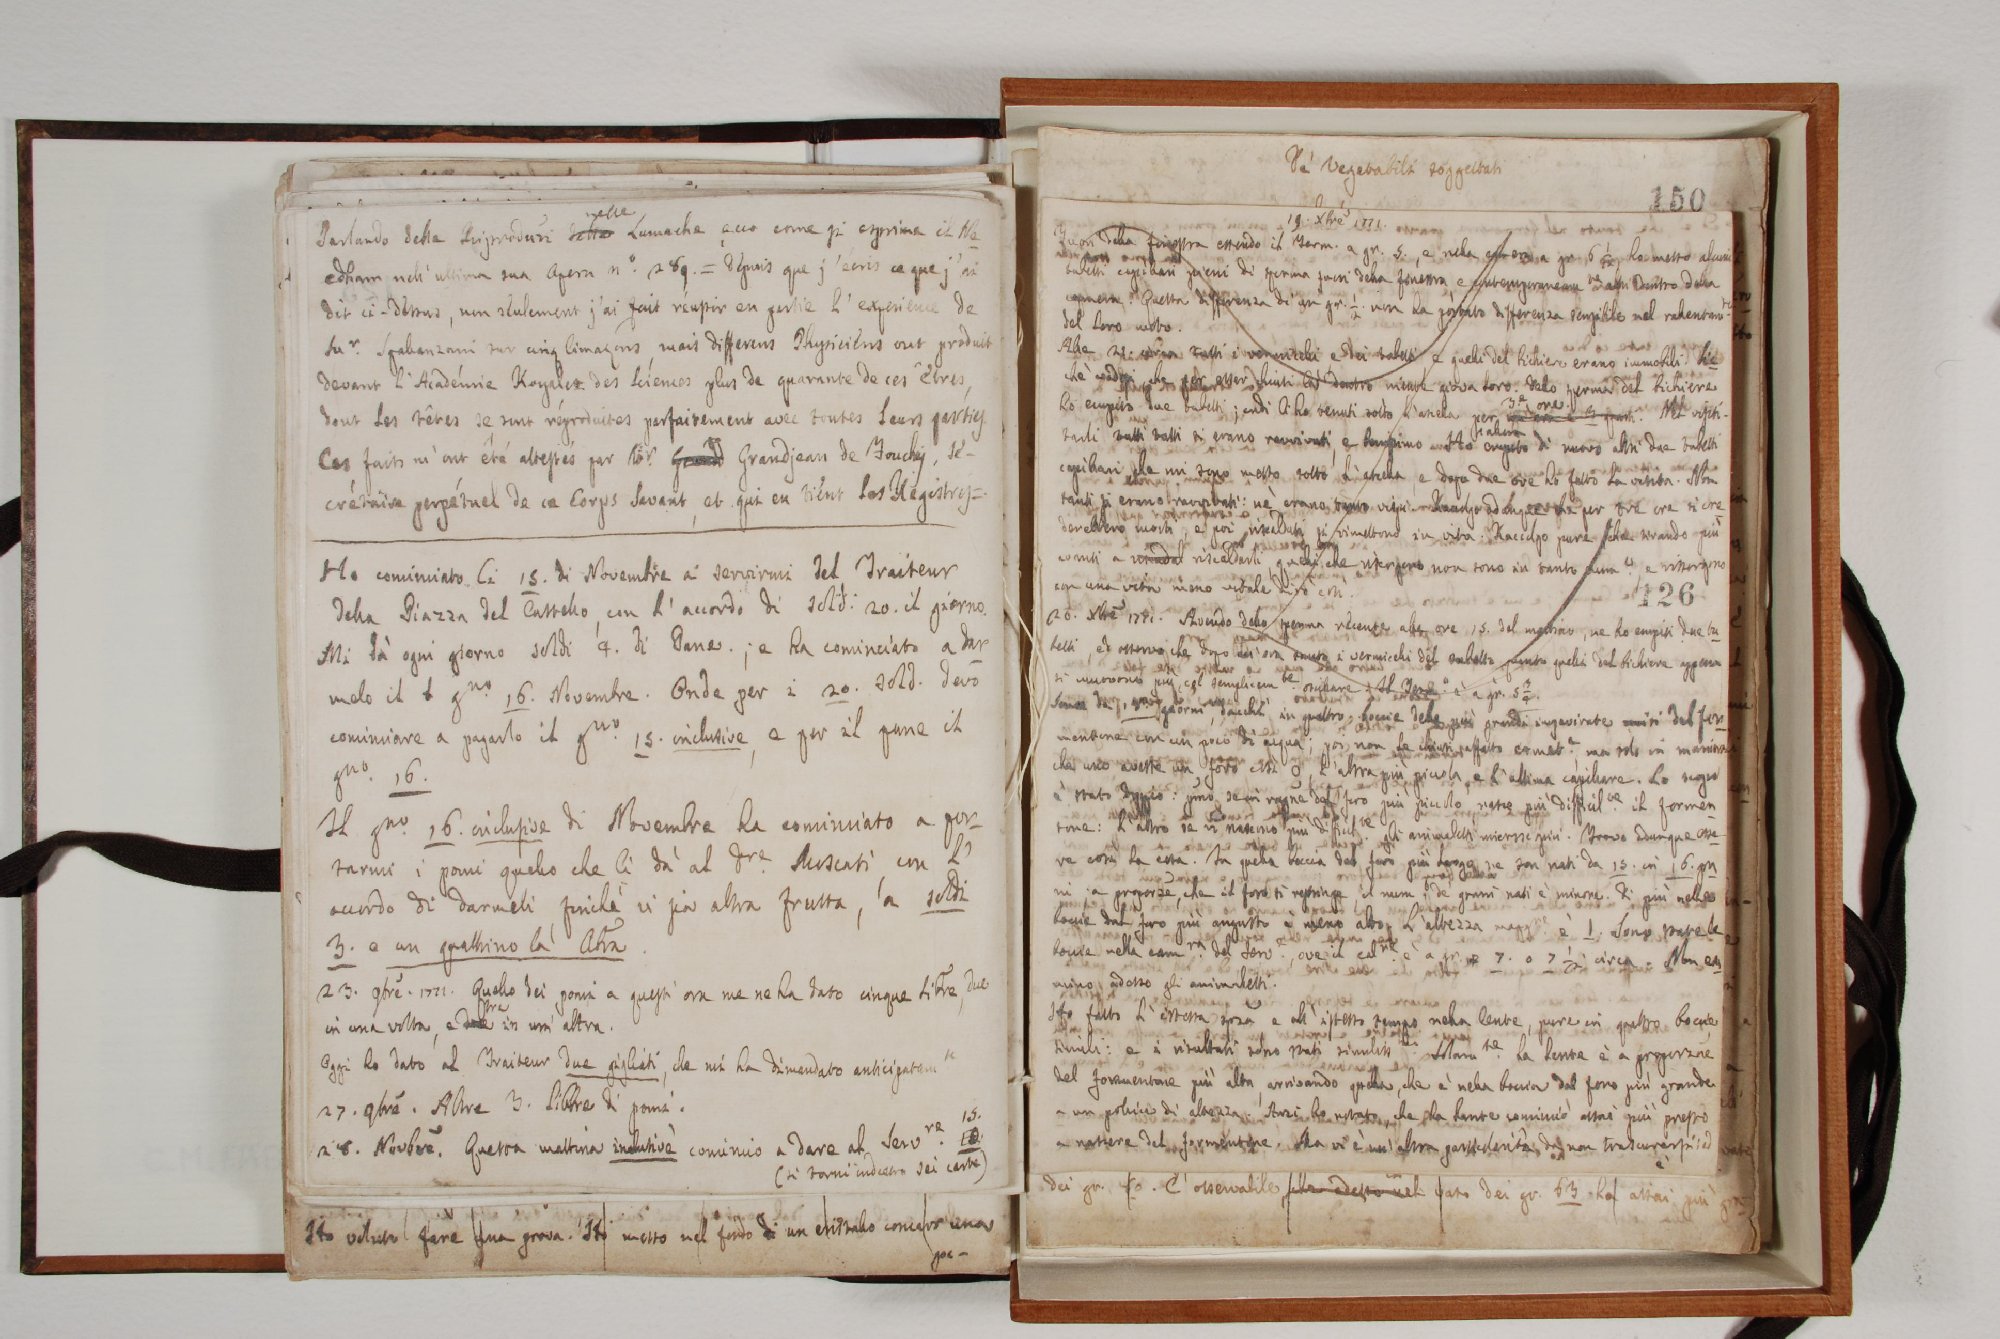 Parlando delle Riproduzi nelle Lumache ecco come si esprime il Ne
edham nell'ultima sua Opera n.º 289. = Dépuis que j'écris ce que j'ai
dit ci-dessus, non seulement j'ai fait réussir en partie l'experience de
Mr. Spalanzani sur cinq limaçons, mais differens Physiciens ont produit
devant l'Académie Royale des Sciences plus de quarante de ces Êtres,
dont les têtes se sont réproduites parfaitement avec toutes leurs parties
Ces faits m'ont été attestés par Mr. Grandjean de Fouchy, Sé-
crétaire perpétuel de ce Corps savant, et qui en tient les Régistres =.
Ho cominciato li 15. di Novembre a servirmi del Traiteur
della Piazza del Castello, con l'accordo di soldi 20. il giorno.
Mi dà ogni giorno soldi 4. di Pane.; e ha cominciato a dar
melo il gno 16. Novembre. Onde per i 20. sold. devo
cominciare a pagarlo il gno. 15. inclusive, e per il pane il
gno. 16.
Il gno. 16. inclusive di Novembre ha cominciato a por-
tarmi i pomi quello che li dà al Dre. Moscati, con l'
accordo di darmeli finchè vi sia altra frutta, a soldi
3. e un quattrino la libra.
23. 9bre. 1771. Quello dei pomi a quest'ora me ne ha dato cinque libre, due
in una volta, e tre in un'altra.
Oggi ho dato al Traiteur due gigliati, che mi ha dimandato anticipatamte
27. 9bre. Altre 3. libbre di pomi.
28. Novbre. Questa mattina inclusive comincio a dare al Servre. 15.
(si torni indietro sei carte)
Ho voluto fare una prova. Ho messo nel fondo di un cristallo concavo una
goc-
De' Vegetabili soggettati
150
19. Xbre 1771.
Fuori della finestra essendo il Term. a gr. 5., e nella camera a gr. 6 1/2 ho messo alcuni
tubetti capillari pieni di sperma fuori della finestra e contemporaneamte altri dentro della
camera. Questa differenza di un gr. 1/2 non ha portato differenza sensibile nel rallentamto
del loro moto.
Alle 21. tutti i vermicelli e dei tubetti e quelli del bichier erano immobili.
che per esser chiusi là dentro niente giova loro. Dello sperma del bichiere
ho empito due tubetti; indi li ho tenuti sotto l'ascella per 3. ore. Nel visi-
tarli tutti si erano ravvivati, e Ho empito di nuovo altri due tubetti
capillari che mi sono messo sotto l'ascella, e dopo due ore ho fatto la visita. Non
tanti si erano ravvivati: nè erano tanto vispi. Raccolgo adunque che per tre ore si cre
derebbero morti, e poi riscaldati si rimettono in vita. Raccolgo pure che stando più
corsi a riscaldarli, quelli che risorgono non sono in tanta e risorgono
con una vita meno vitale dirò così.
126
20. Xbre 1771. Avendo dello sperma recente alle ore 15. del mattino, ne ho empiti due tu
betti, ed osservo che dopo un'ora tanto i vermicelli del tubetto quanto quelli del bichiere appena
si muovono più, col semplicemte oscillare. Il Termo. è a gr. 5 3/4.
giorni, dacchè in quattro boccie delle più grandi impavirate misi del for
mentone con un poco di acqua; poi non le chiusi affatto ermete. ma solo in maniera
che uno avesse un foro così O, l'altra più piccola, e l'ultima capillare. Lo scopo
è stato doppio: primo, se in ragne. del foro più piccolo, nasce più difficilte. il formen
tone: l'altro se vi nascono più difficilte gli animaletti microscopici. Trovo adunque esse
re così la cosa. In quella boccia dal foro più largo ne son nati da 15. in 16. gra
ni; a proporzne. che il foro si restringe, il num.o de' grani nati è minore. Di più nelle
boccie dal foro più angusto è meno alto. L'altezza magg.re è 1. Sono state le
boccie nella cam.ra del Serv.re, ove il cal.re è a gr. 7. o 7 1/2 circa. Non esa
mino adesso gli animaletti.
Ho fatto l'istessa cosa e all'istesso tempo nella lente, pure in quattro boccie
simili: e i risultati sono stati simili. Solamte. la lente è a proporzne
del formentone più alta arrivando quella, che è nella boccia dal foro più grande
a un pollice di altezza. Anzi ho notato, che la lente cominciò assai più presto
a nascere del formentone. Ma vi è un'altra particolarità da non trascurarsi ed
è
dei gr. 60. E' osservabile nel vaso dei gr. 63 ha assai più